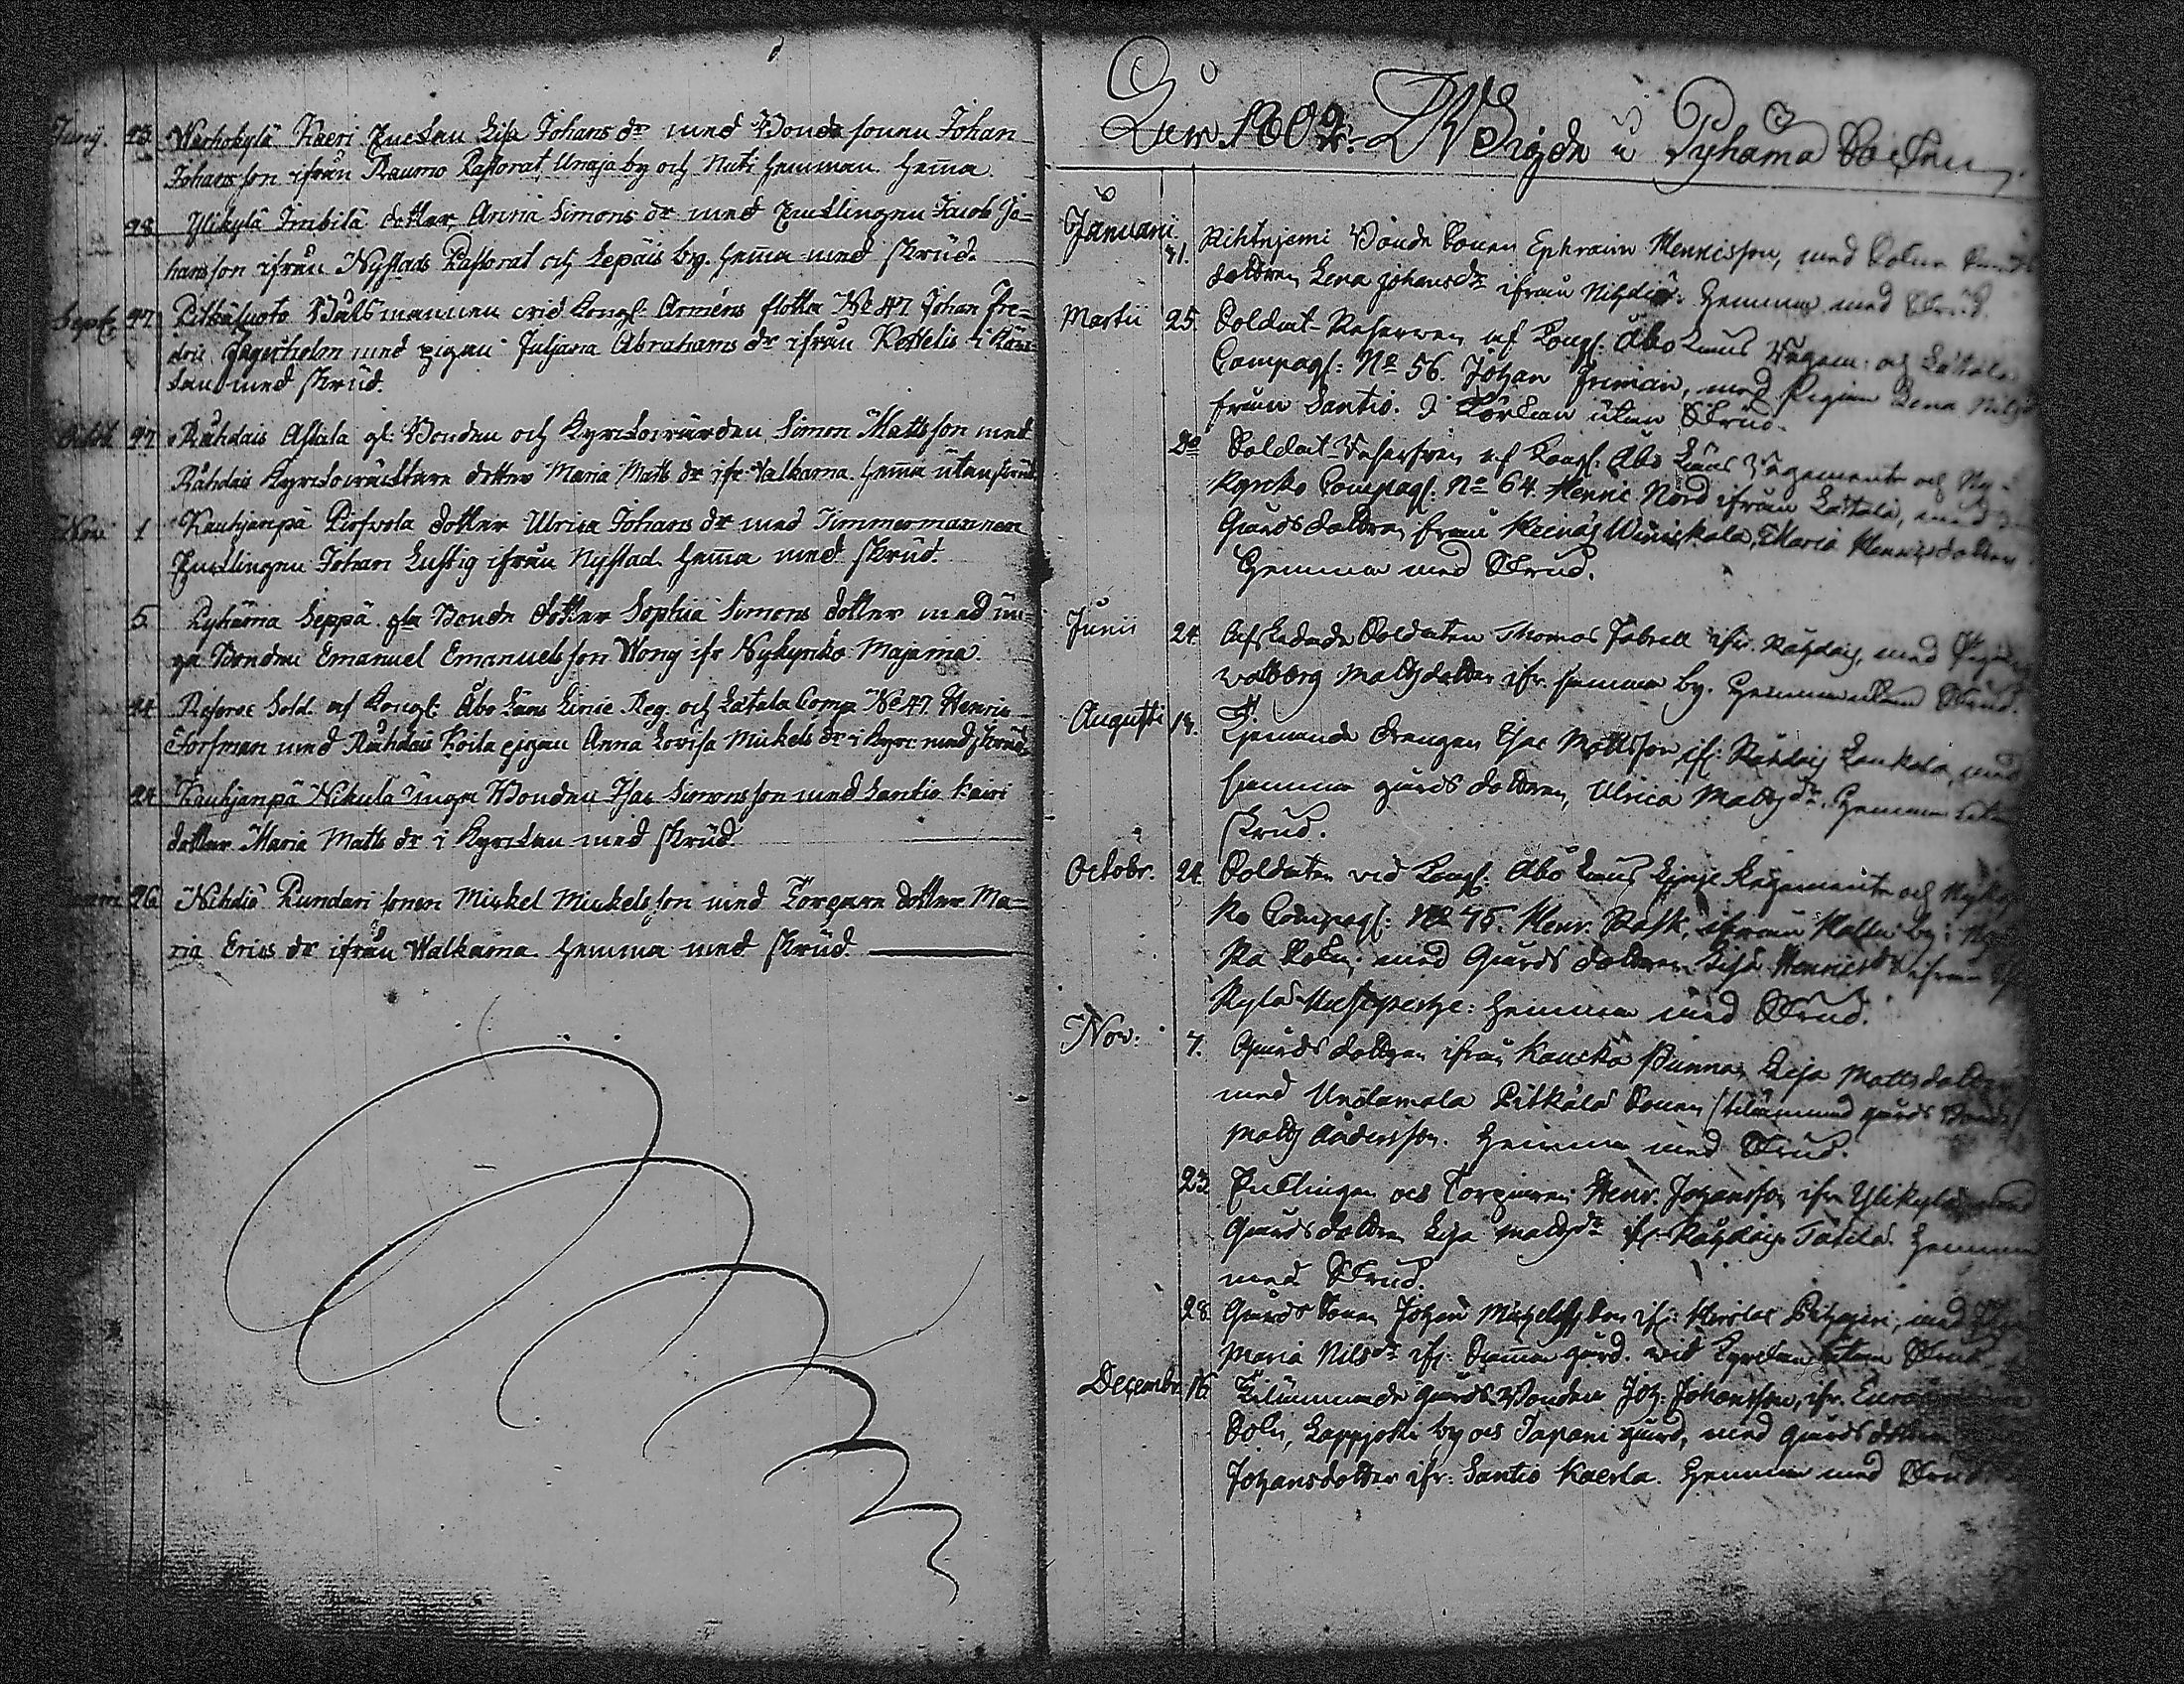 Junij. 23. Warhokylä Kaeri Enckan Lisa Johans dr med Bonde sonen Johan
Johansson ifrån Raumo Pastorat Unaja by och Nuti hemman. hema
28 Ylikylä Imbilä dotter Anna Simons dr med Encklingen Jacob Jo=
hansson ifrån Nystads Pastorat och Lepäis by. hema med skrud.
Sept. 27 Pitkäluoto Båtsmannen vid Kongl: Arméns flotta No 47 Johan Fre=
dric Fagerholm med pigan Juliana Abrahams dr ifrån Kettelis i Kyr=
kan med skrud.
Octob. 27 Råhdais Astala gl: Bonden och Kyrckowärden Simon Mattsson med
Råhdais Kyrckowäcktare dotter Maria Matts dr ifr. Walkama. hema utan skrud
Nov. 1 Kauhjanpä Pirfvola dotter Ulrica Johans dr med Timmermannen
Encklingen Johan Lustig ifrån Nystad. hema med skrud.
5 Pyhäma Seppä gla Bonde dotter Sophia Simons dotter med un=
ga Bonden Emanuel Emanuelsson Wony ifr Nykyrko Majama.
24 Reserve Sold. af Kongl: Åbo Läns Linie Reg. och Latala Comp No 47. Henric
Forsman med Råhdais Koila pigan Anna Lovisa Mickels dr i kyrc. med skrud.
24 Kauhjanpä Nikula unga Bonden Isac Simonsson med Santio Kairi
dotter Maria Matts dr i Kyrckan med skrud.
26 Nihdiö Rundari sonen Mickel Mickelsson med Torpare dotter Ma=
ria Erics dr ifrån Walkama. hemma med skrud.
1802 Wigde i Pyhäma Socken.
Januari. 31. Rihtnjemi Bonde Sonen Ephraim Henricsson, med
dottren Lena Johansdr ifrån Nihdiö. Hemma med Skrud.
Martii 25. Soldat-Reserven af Kongl. Åbo Läns Regem: och Latala
Compagl: No 56. Johan Friman, med Pigan Lena Nilsd
från Santio. I Kÿrckan utan Skrud.
Do Soldat-Reserven af Kongl. Åbo Läns Regemente och Ny-
Kyrcko Compagl: No 64. Henric Nord ifrån Lattala, med
Gårds dottren från Heinäs Winickala, Maria Henricsdotter.
Hemma med Skrud.
Junii 24. Afskedade Soldaten Thomas Fabrell ifr. Råhdais, med Pigan
Walborg Mattsdotter ifr. samma by. Hemma utan Skrud.
Augusti 14. Tjenande Drengen Isac Mattsson ifr: Råhdais Laukola med
samma gårds dottren, Ulrica Mattsdr. Hemma utan
Skrud.
Octobr. 24. Soldaten vid Kongl. Åbo Läns Linje Regemente och Nykyr
ko Compagl: No 45. Henr. Rask, ifrån by i Nykyr
ko Sokn; med Gårds dottren Lisa Henricsdr ifrån
Kylä: Hemma med Skrud.
Nov: 7. Gårds dottren ifrån Kaucko Punna, Lisa Mattsdotter
med Undamala Pitkälä Sonen (tilämnad gårds Bonde)
Matts Andersson. Hemma med Skrud.
23 Encklingen och Torparen Henr. Johansson ifrån Ylikylä med
Gårds dottren Lisa Mattsdr ifr. Råhdais Tätilä. Hemma
med Skrud.
28 Gårds Sonen Johan Michelsson ifr: Pihajeri, med
Maria Nilsdr ifr: Samma gård. wid Kyrckan utan Skrud.
Decembr. 16. Tilämnande gårds Bonden Joh. Johansson, ifr. Euraåminne
Sokn, Lappjoki by och Tapani gård, med gårds dottren
Johansdotter ifr: Santio Kaerla. Hemma med Skrud.